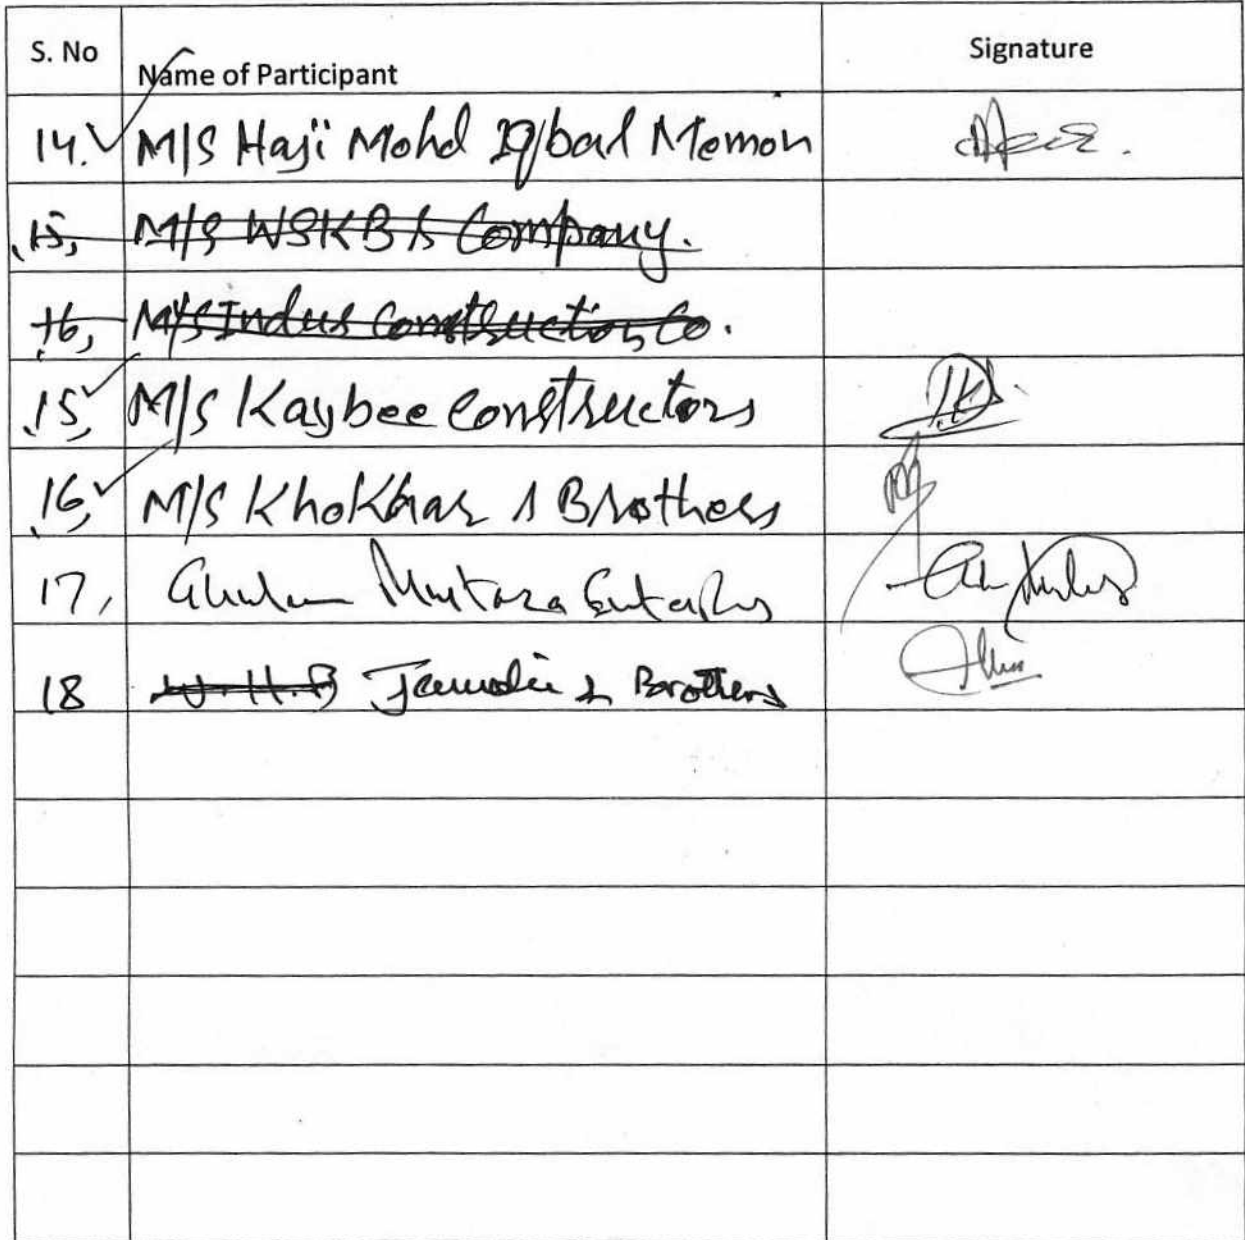 S. No Name of Participant Signature
14. M/S Haji Mohd Iqbal Memon
15, M/S WSKB & Company.
16, M/S Indus Construction Co.
15, M/S Kaybee Constructors
16, M/S Khokhar & Brothers
17, Ghulam Murtaza
18 W.H.B & Brothers